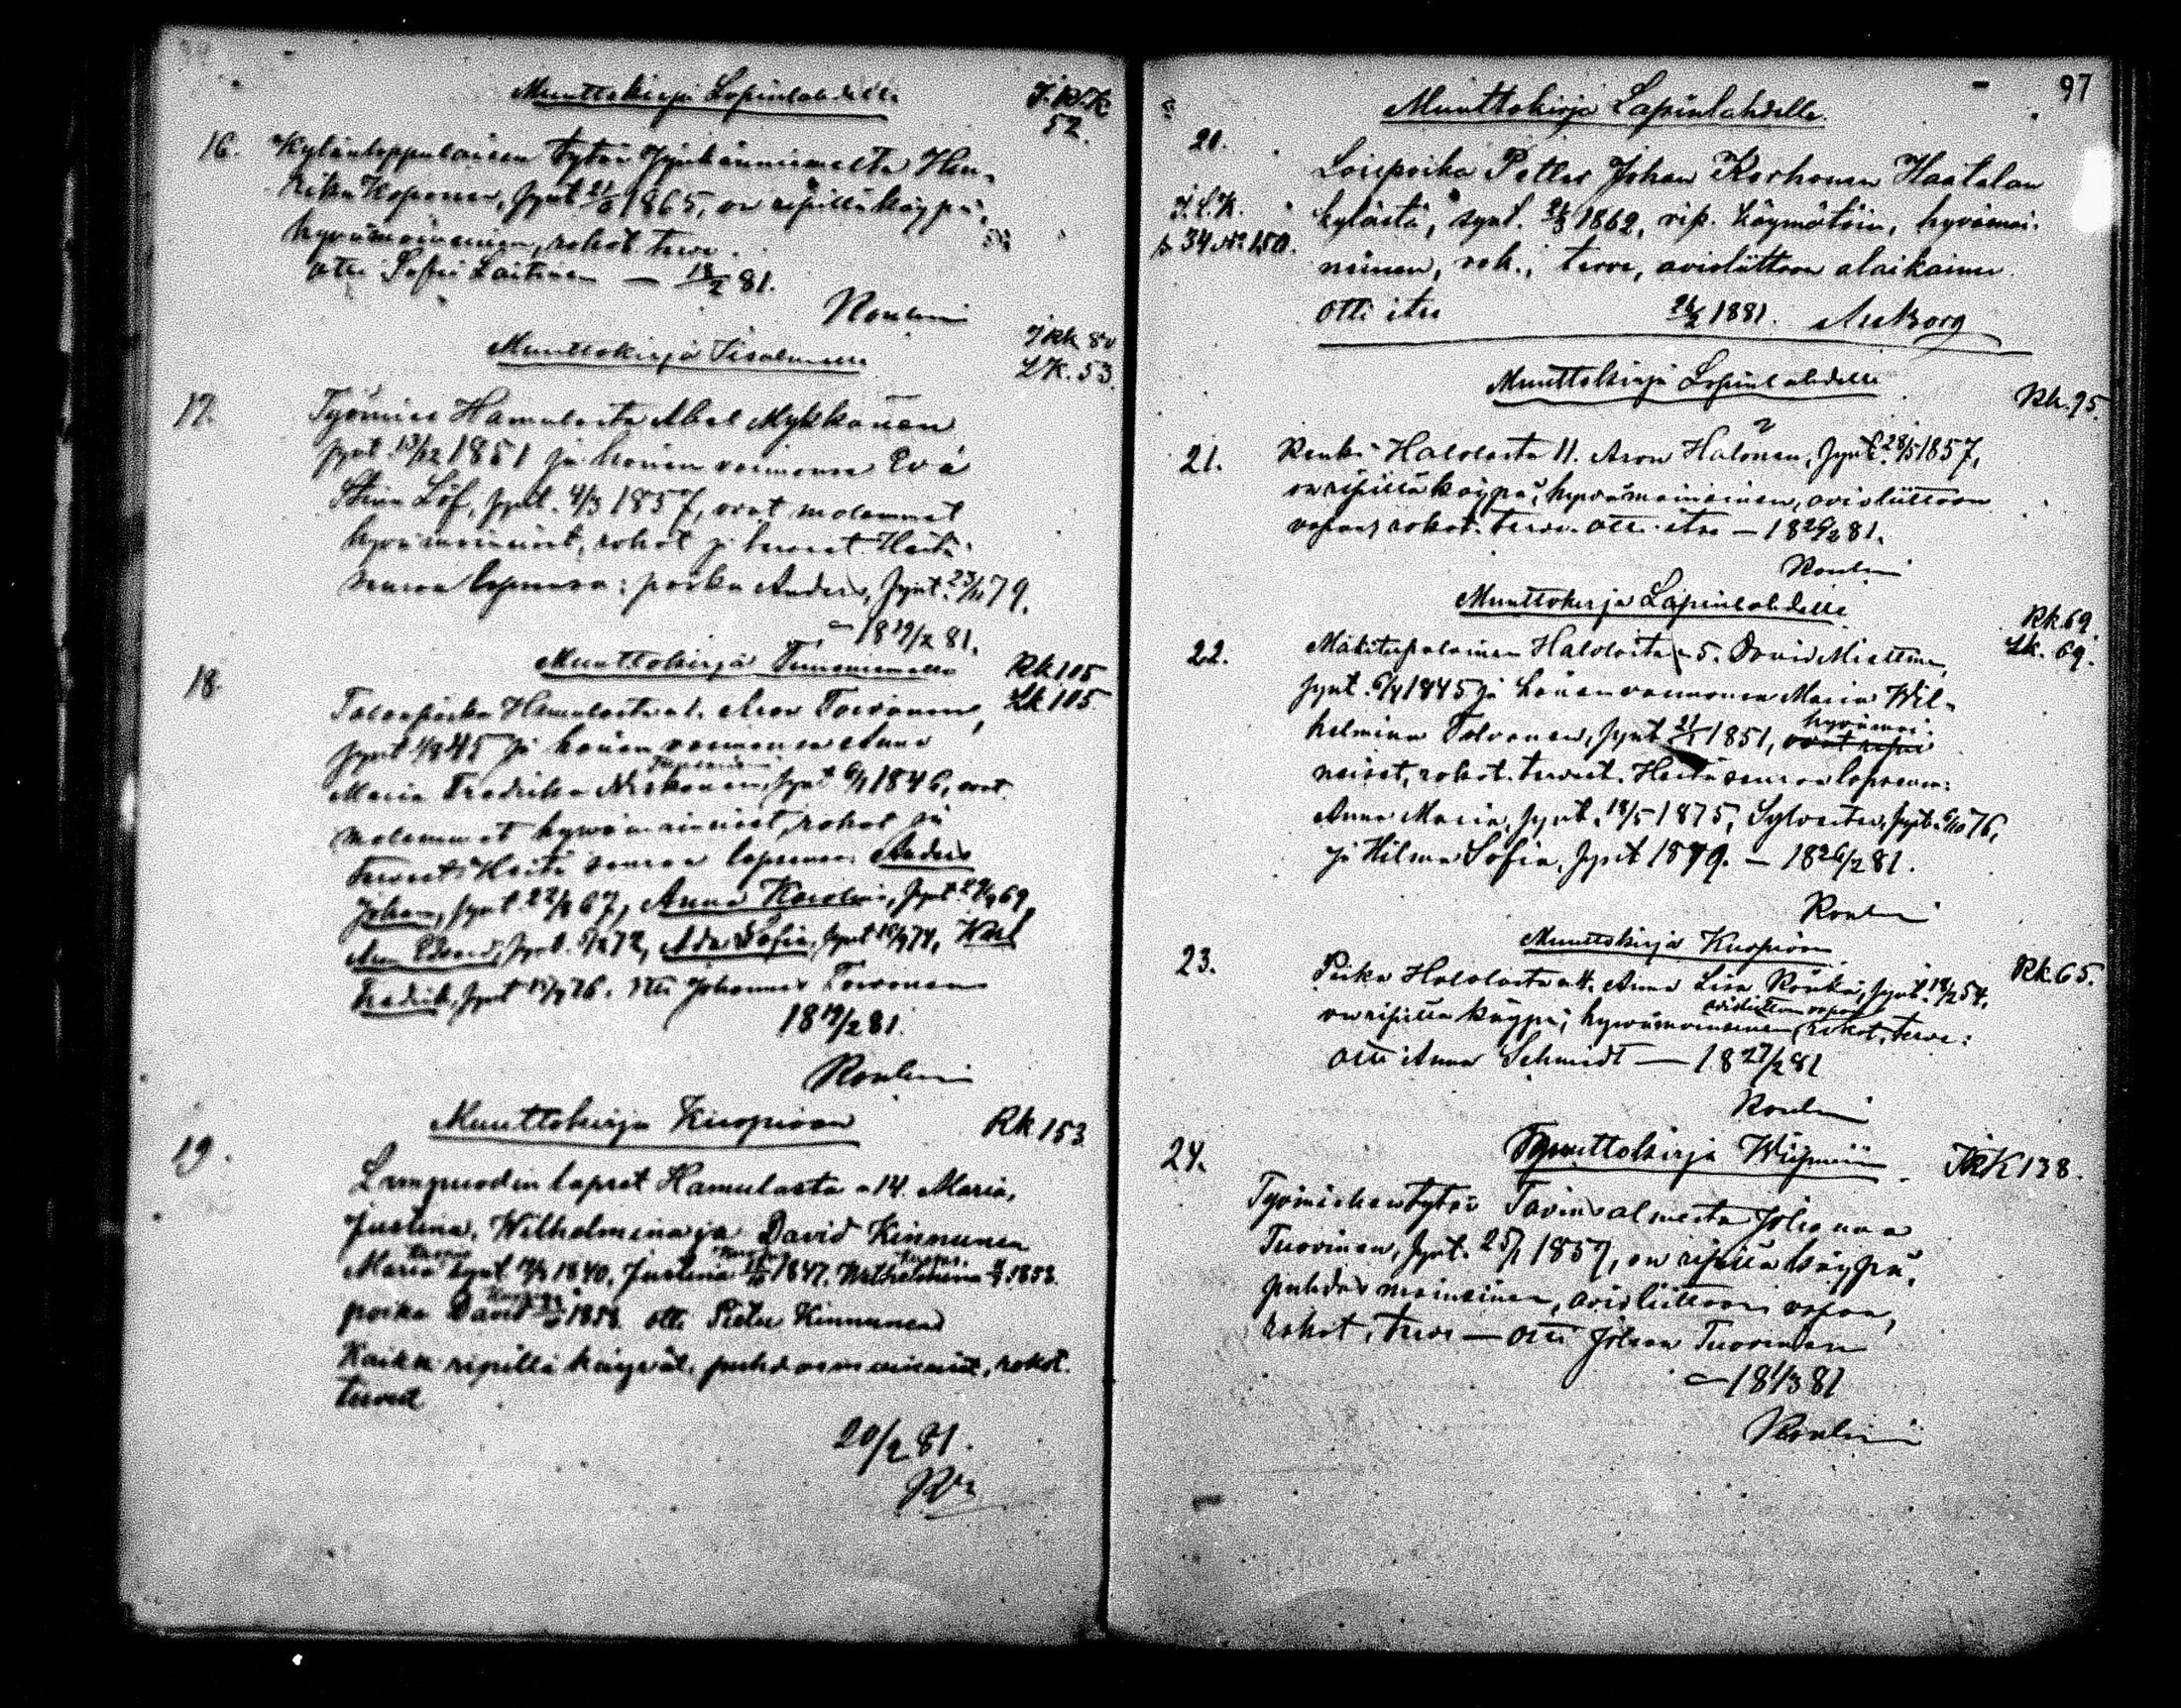 Muuttokirja Lapinlahdelle
J.R.K.
52.
16. Kylänloppulaisen tytär Jynkänniemeltä Hen-
rika Koponen, synt. 1865, on ripillä käypä,
hyvämaineinen, rokot. terve.
otti Sofia Laitinen — 18/2 81.
Roulin
Muuttokirja Iisalmeen
J Rk 80
LK. 53.
17. Työmies Hamulasta Abel Mykkänen
synt. 13/12 1851 ja hänen vaimonsa Eva
Stina Löf, synt. 4/3 1857, ovat molemmat
hyvämaineiset, rokot ja terveet. Heitä
seuraa lapsensa: poika Anders, synt. 23/11 79.
— 18 19/2 81.
Muuttokirja
Rk 105
Lk 105
18. Talonpoika Hamulasta 1. Aron Toivanen,
synt. 45 ja hänen vaimonsa Anna
Maria Fredrika synt 6/1 1846, ovat
molemmat hyvämaineiset, rokot ja
terveet. Heitä seuraa lapsensa: Anders
Johan, synt. 22/8 67, Anna Karolina, synt. 69,
Edvard, synt. 72, Ada Sofia, synt 74, Karl
Fredrik, synt 76. Otti Johannes Toivanen
18 19/2 81.
Roulin
Muuttokirja Kuopioon
Rk 153
19. Lampuodin lapset Hamulasta 14. Maria,
Justina, Wilhelmina ja David Kinnunen
Maria synt 1840, Justina 1847, Wilhelmina 1853.
poika David 1858 otti Pieter Kinnunen
Kaikki ripillä käyvät, puhdasmaineiset, rokot.
terveet
20/2 81.
97
Muuttokirja Lapinlahdelle.
20.
J.L.K.
p 34 No 150.
Loispoika Petter Johan Korhonen Haatalan
kylästä, synt. 1862, rip. käymätöin, hyvämai-
neinen, rok., terve, avioliittoon alaikainen.
Otti itse 26/2 1881. Aukorg
Muuttokirja Lapinlahdelle
Rk. 95.
21. Renki Halolasta 11. Aron Halonen, synt. 28/5 1857,
on ripillä käypä, hyvämaineinen, avioliittoon
vapaa, rokot. terve. otti itse — 18 26/2 81.
Roulin
Muuttokirja Lapinlahdelle
Rk 69.
Lk. 69.
22. Mäkitupalainen Halolasta 5. David Miettinen,
synt. 6/4 1845 ja hänen vaimonsa Maria Wil-
helmina Tolvanen, synt 21/1 1851, ovat hyvämai-
neiset, rokot. terveet. Heitä seuraa lapsensa:
Anna Maria, synt. 18/5 1875, Sylvester, synt. 6/10 76,
ja Hilma Sofia, synt 1879. — 18 26/2 81.
Roulin
Muuttokirja Kuopioon
Rk. 65.
23. Piika Halolasta 4. Anna Lisa Rönkä, synt. 18/2 54,
on ripillä käypä, hyvämaineinen, avioliittoon vapaa, rokot, terve.
otti Anna Schmidt — 18 27/2 81
Roulin
24. Muuttokirja Wiipuriin
JRK 138.
Työmiehen tytär Tavinsalmesta Johanna
Tuovinen, synt. 25/1 1857, on ripillä käypä,
puhdasmaineinen, avioliittoon vapaa,
rokot, terve — otti Johan Tuovinen
— 18 1/3 81
Roulin